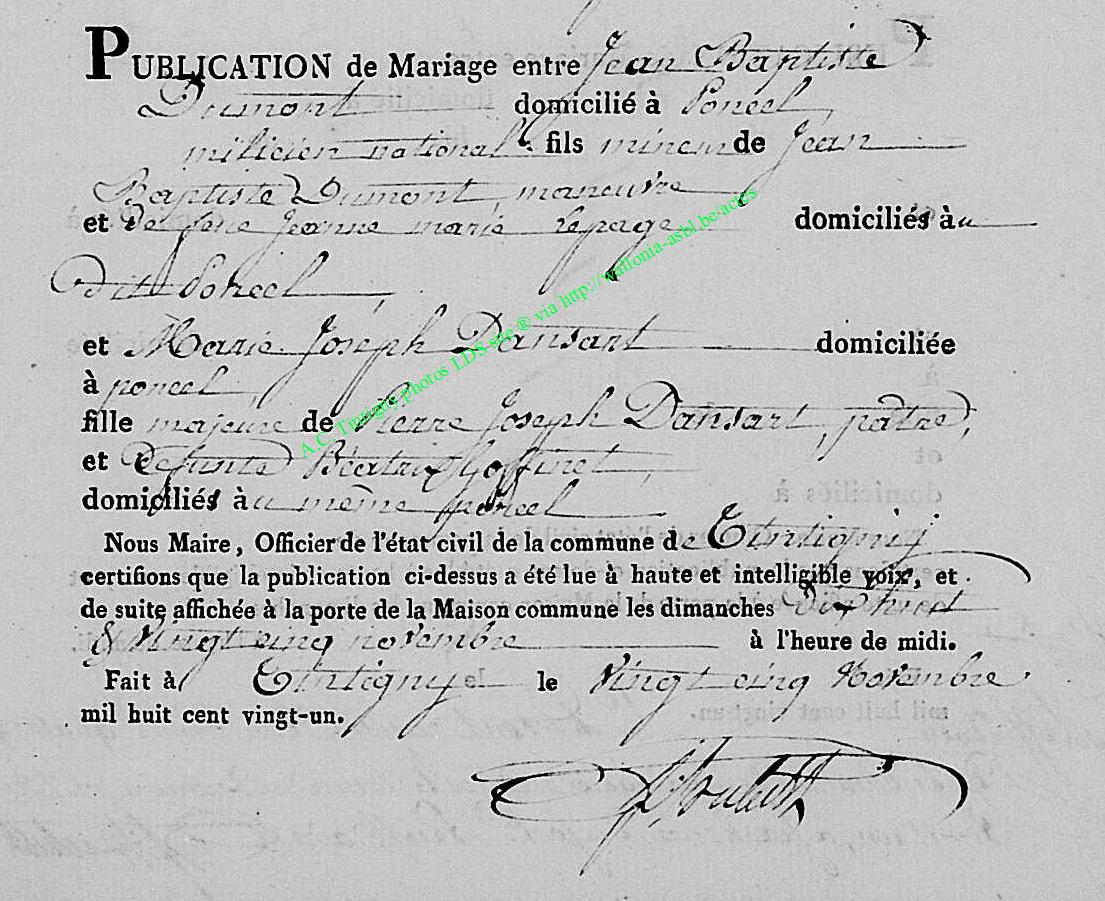 PUBLICATION de Mariage entre Jean Baptiste
Dumont domicilié à Poncel,
milicien national fils mineur de Jean
Baptiste Dumont, manœuvre
et de fene Jeanne marie Lepage domiciliés à u
dit Poncel,
et Marie Joseph Dansart domiciliée
à poncel,
fille majeure de Pierre Joseph Dansart, pâtre,
et defunte Béatrix Goffinet,
domiciliés à u même poncel
Nous Maire, Officier de l'état civil de la commune de Tintigny
certifions que la publication ci-dessus a été lue à haute et intelligible voix, et
de suite affichée à la porte de la Maison commune les dimanches dix huit
& vingt cinq novembre à l'heure de midi.
Fait à Tintigny le vingt cinq Novembre
mil huit cent vingt-un.
A.C. Tintigny photos LDS-site ® via http://wallonia-asbl.be/actes